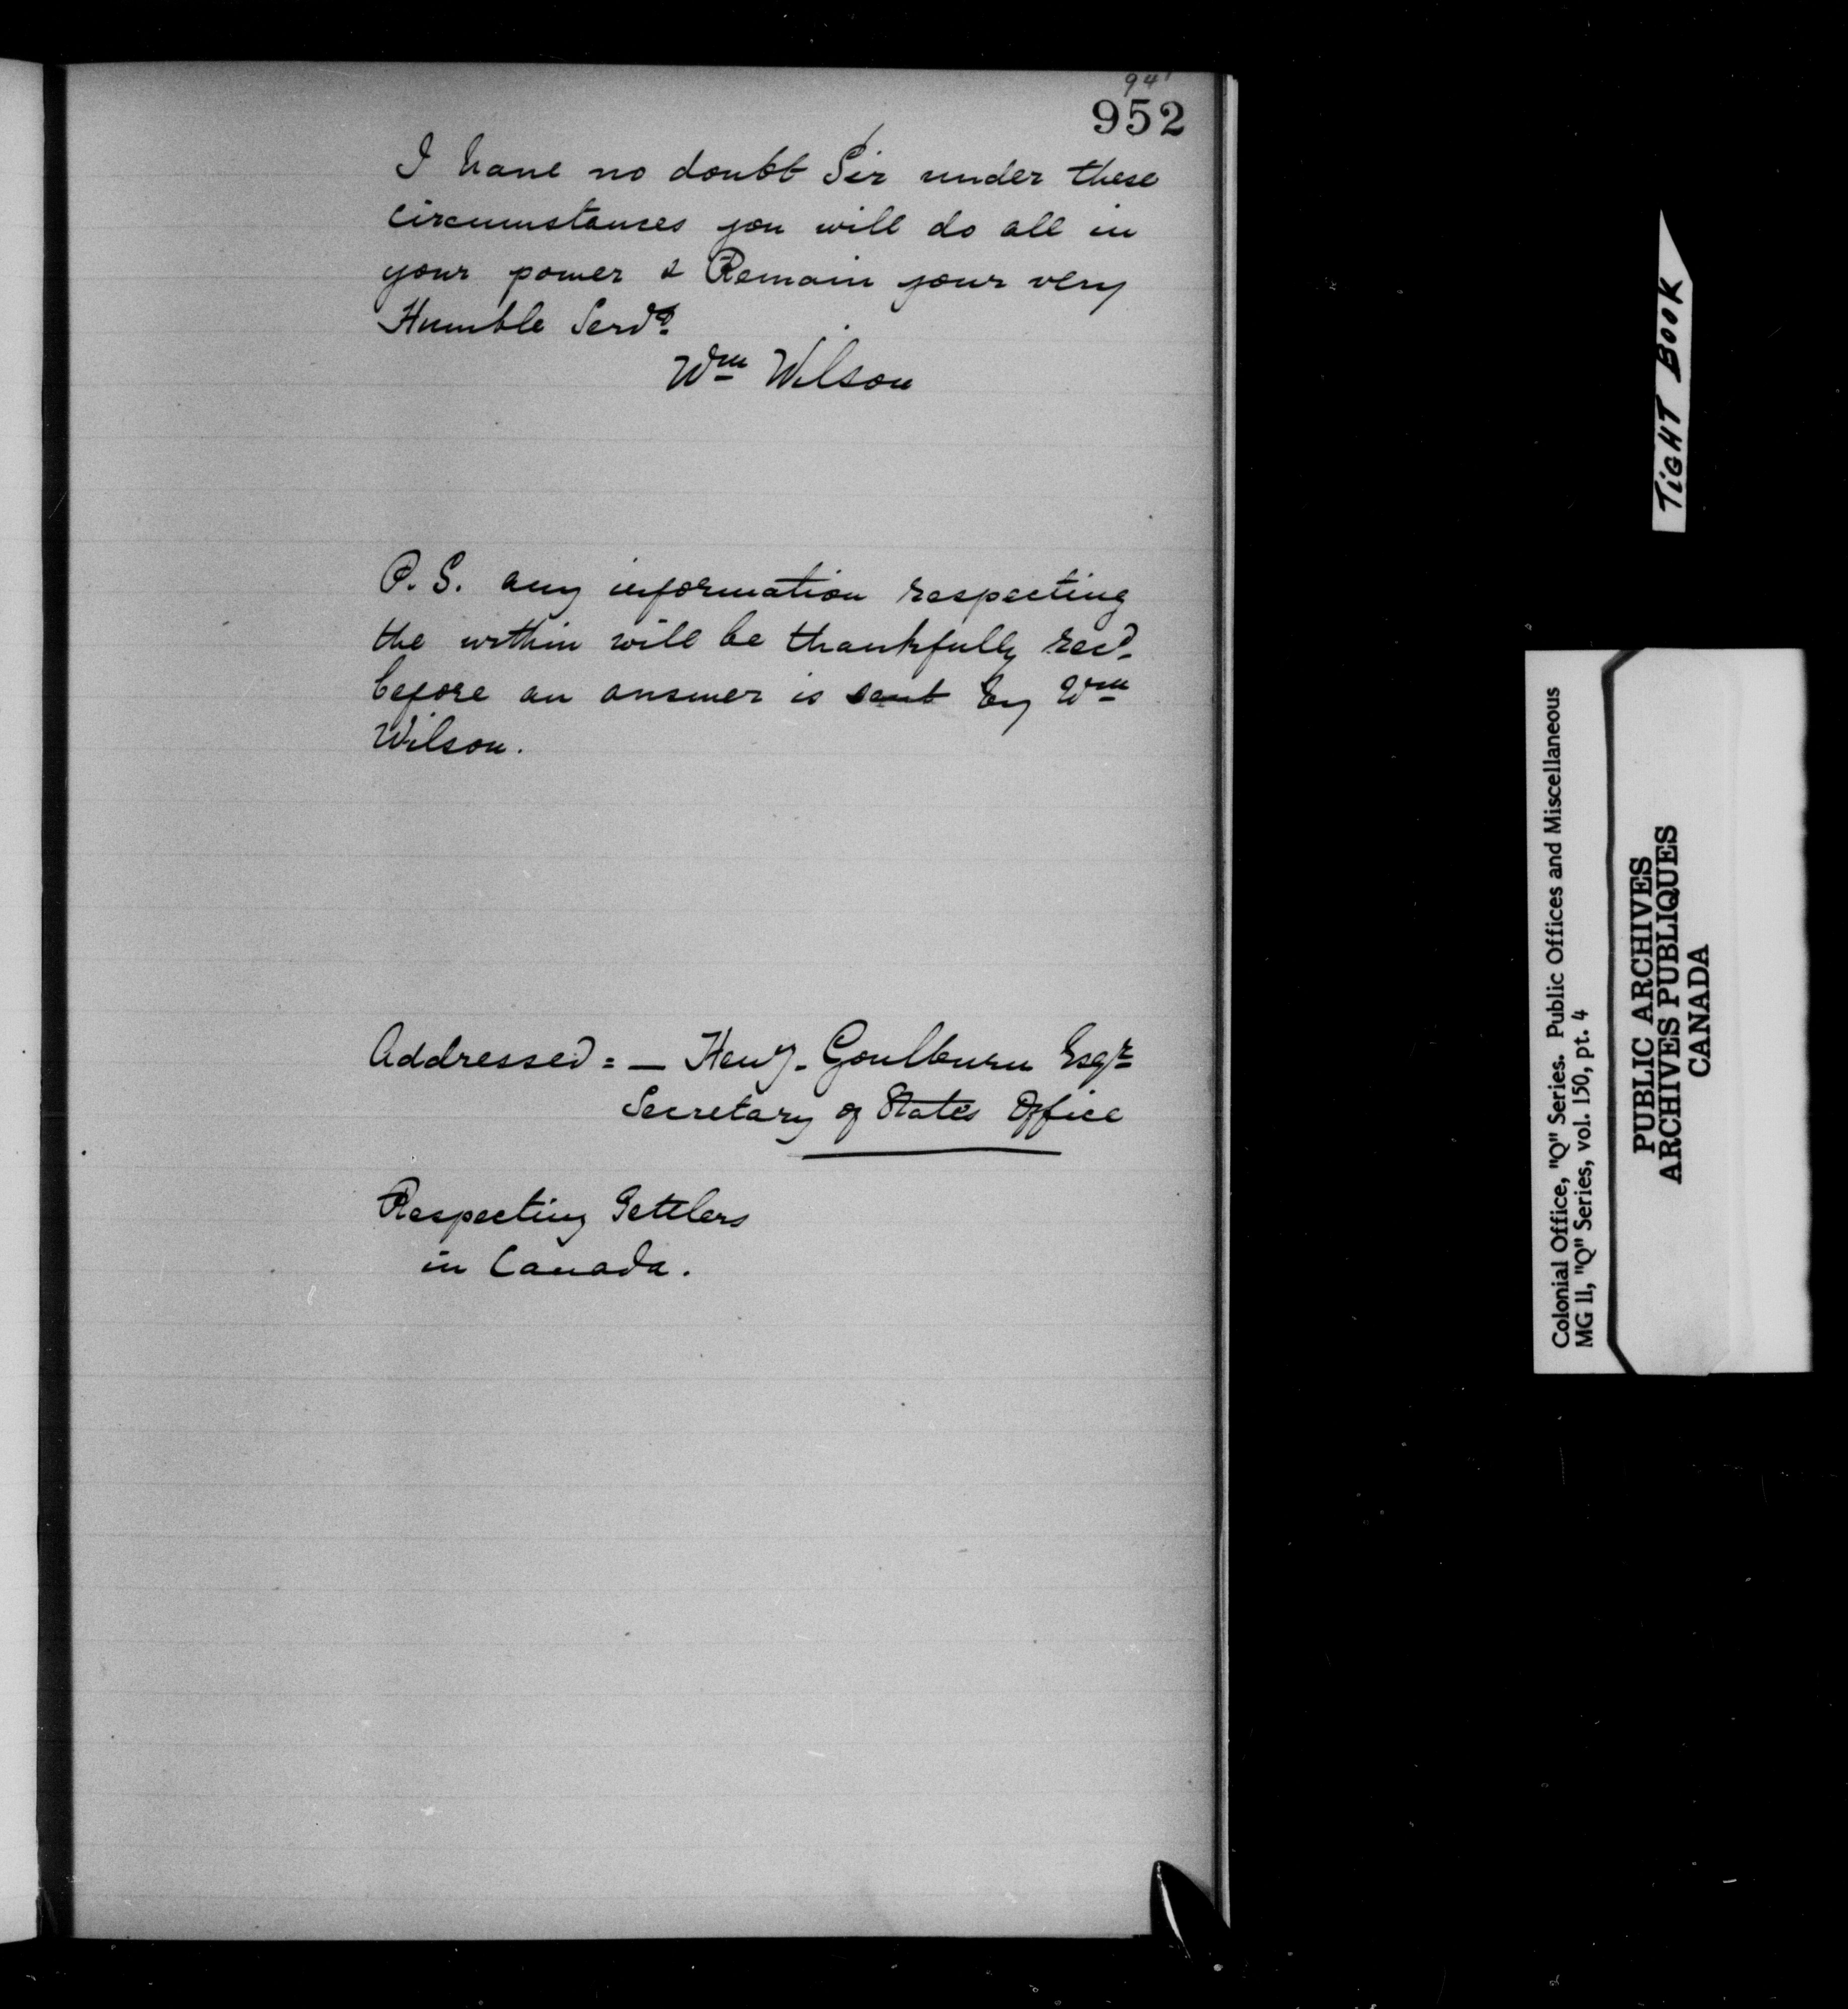 941
952
I have no doubt Sir under these
circumstances you will do all in
your power & Remain your very
Humble Servt
Wm Wilson
P.S. any information respecting
the within will be thankfully recd
before an answer is sent by Wm
Wilson.
Addressed = — Heny. Goulburn Esqr
Secretary of State's Office
Respecting Settlers
in Canada.
TIGHT BOOK
Colonial Office, "Q" Series. Public Offices and Miscellaneous
MG 11, "Q" Series, vol. 150, pt. 4
PUBLIC ARCHIVES
ARCHIVES PUBLIQUES
CANADA